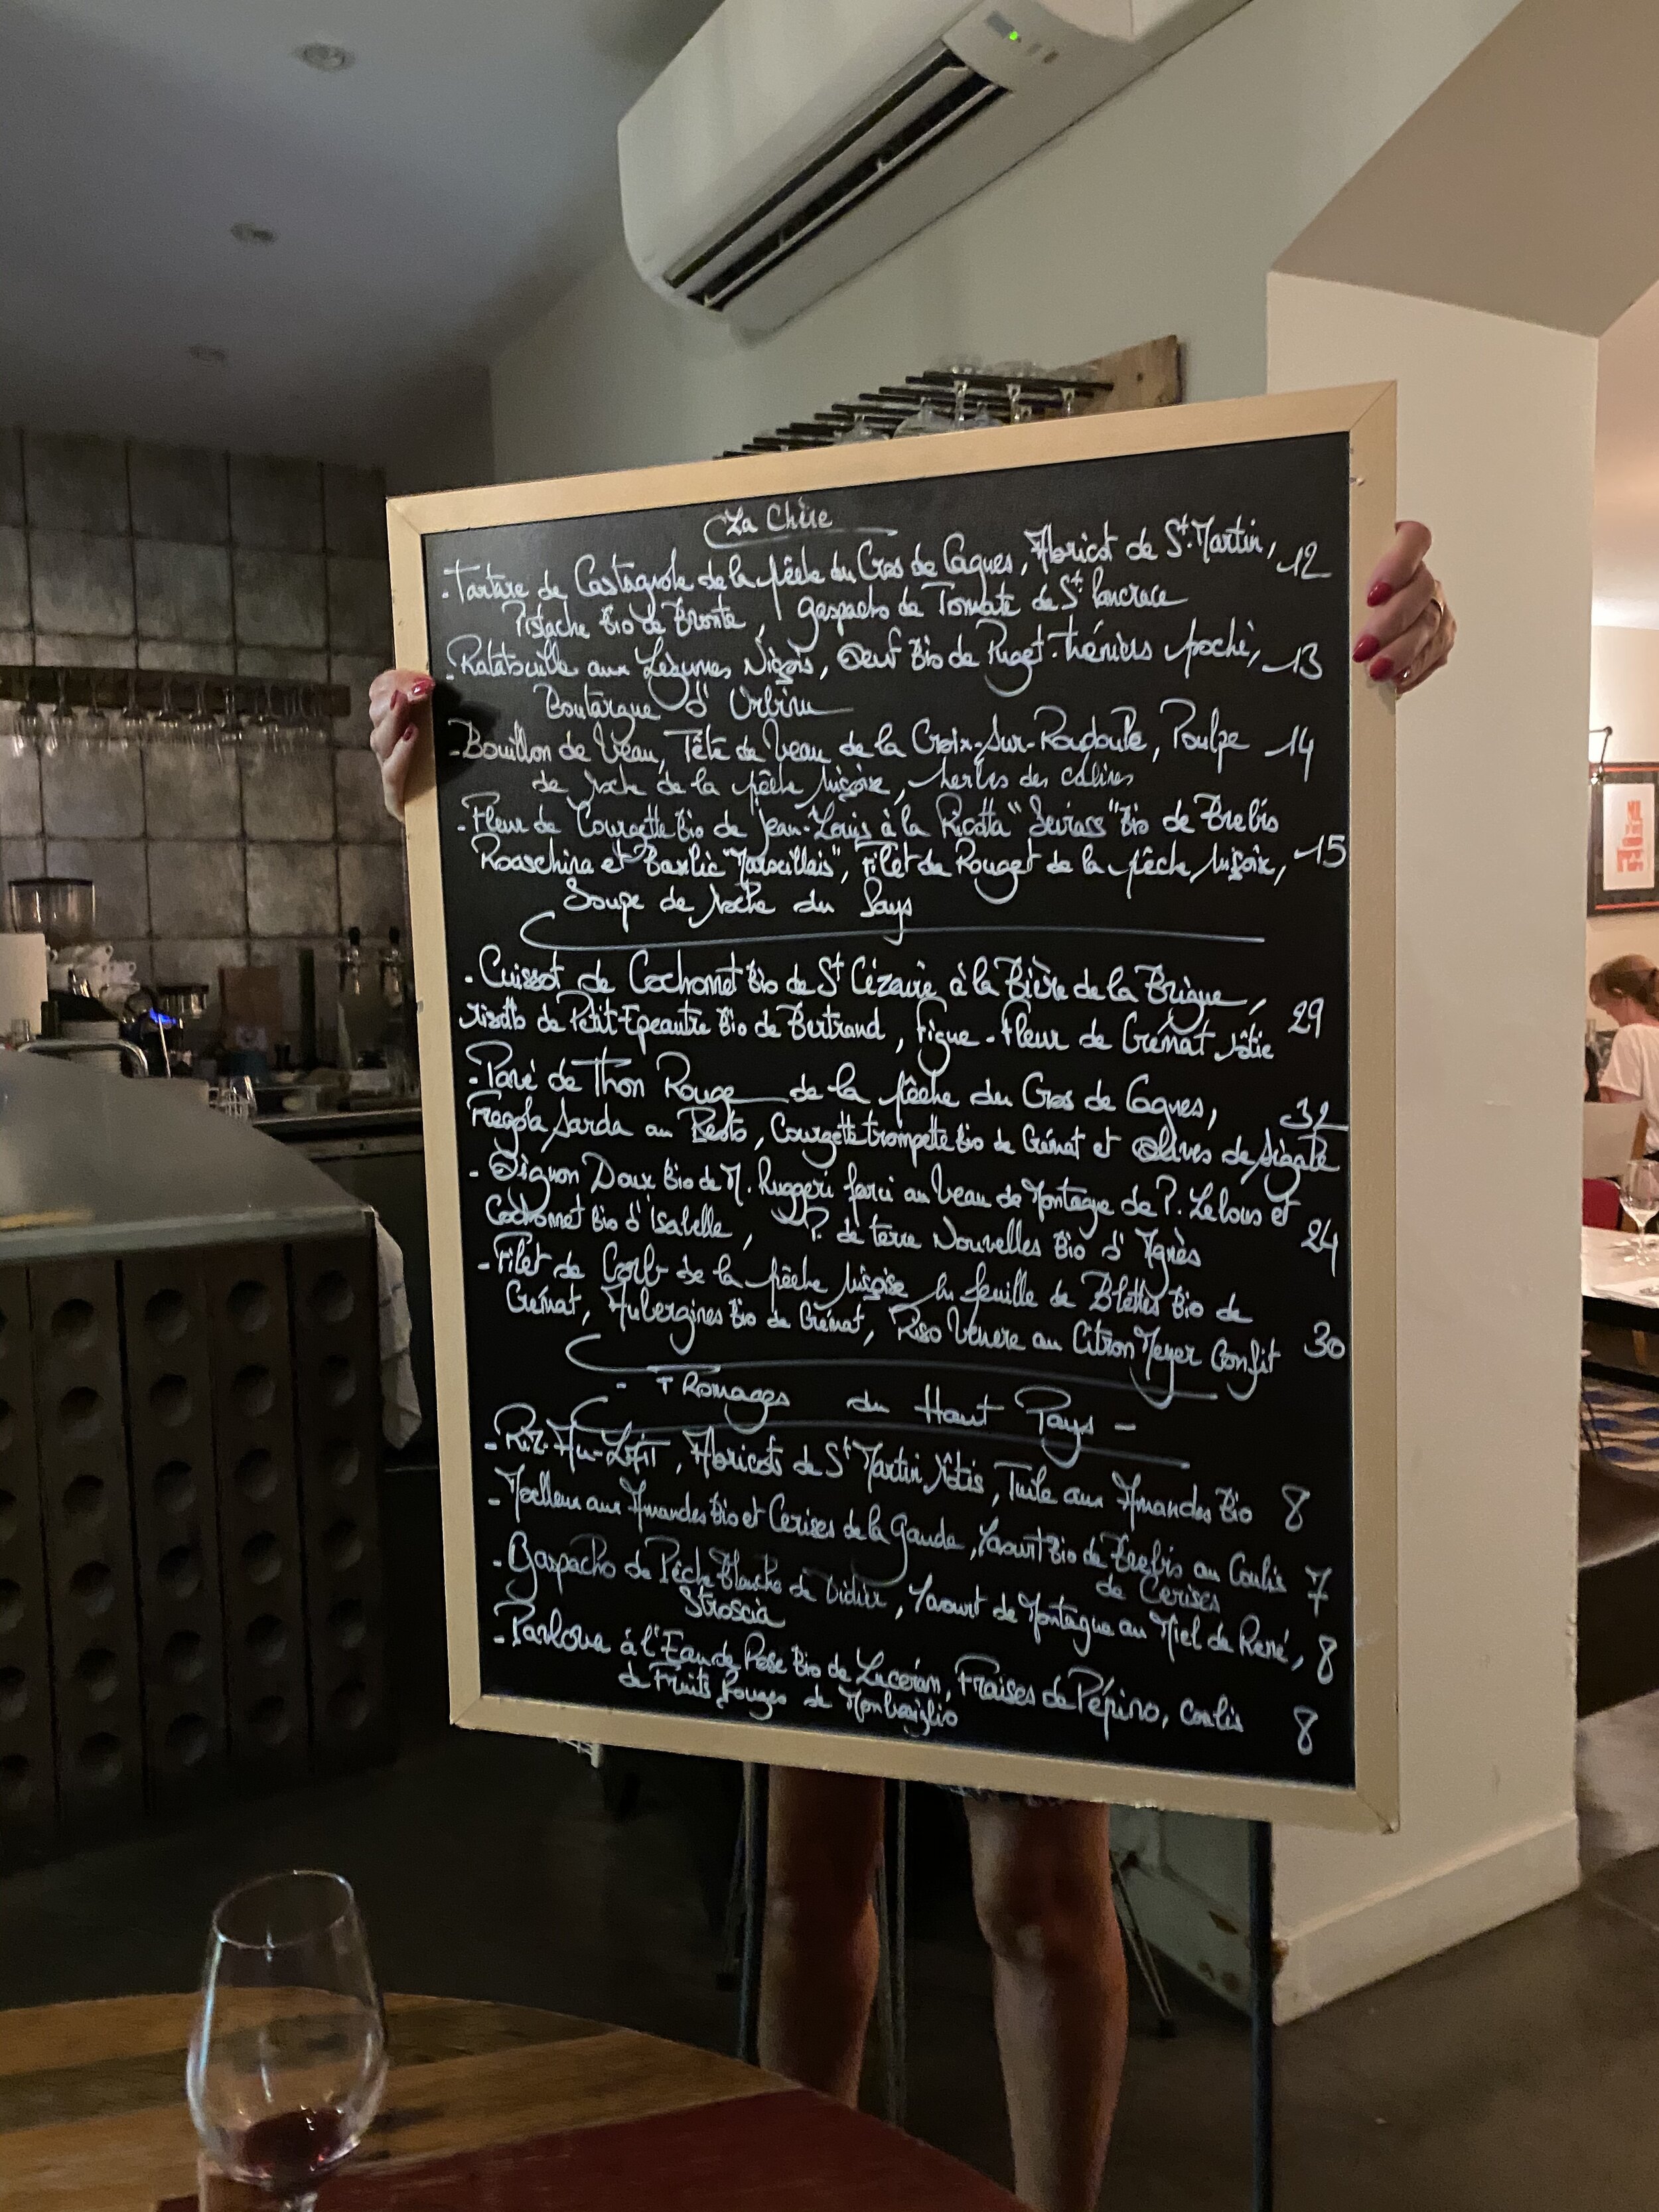 La Chère
- Tartare de Castagnole de la pêche du Cros de Cagnes, Abricot de St. Martin, 12
Pistache Bio de Bronte, gaspacho de Tomate de St Pancrace
- Ratatouille aux Légumes Niçois, Oeuf Bio de Puget-Théniers poché, 13
Boutargue d'
- Bouillon de Veau, Tête de Veau de la Croix-Sur-Roudoule, Poulpe 14
de roche de la pêche niçoise, herbes des collines
- Fleur de Courgette Bio de Jean-Louis à la Ricotta Bio de Brebis
et Basilic "Marseillais", Filet de Rouget de la pêche niçoise, 15
Soupe de roche du Pays
- Cuissot de Cochonnet Bio de St Cézaire à la Bière de la Brigue, 29
risotto de Petit-Epeautre Bio de Bertrand, Figue-Fleur de Crémat rôtie
- Pavé de Thon Rouge de la pêche du Cros de Cagnes, 32
Fregola Sarda au Pesto, Courgette trompette Bio de Crémat et Olives de Sigale
- Oignon Doux Bio de M. Ruggeri farci au Veau de Montagne de P. Lelous et
Cochonnet Bio d'Isabelle, P. de terre Nouvelles Bio d'Agnès 24
- Filet de Corb de la pêche niçoise en feuille de Blettes Bio de
Crémat, Aubergines Bio de Crémat, Riso Venere au Citron Meyer Confit 30
- Fromages du Haut Pays -
- Riz-Au-Lait, Abricots de St Martin rôtis, Tuile aux Amandes Bio 8
- Moelleux aux Amandes Bio et Cerises de la Gaude, Yaourt Bio de Brebis au Coulis 7
de Cerises
- Gaspacho de Pêche Blanche de Didier, Yaourt de Montagne au Miel de René, 8
Stroscia
- Pavlova à l'Eau de Rose Bio de Lucéram, Fraises de Pépino, Coulis
de Fruits Rouges de 8